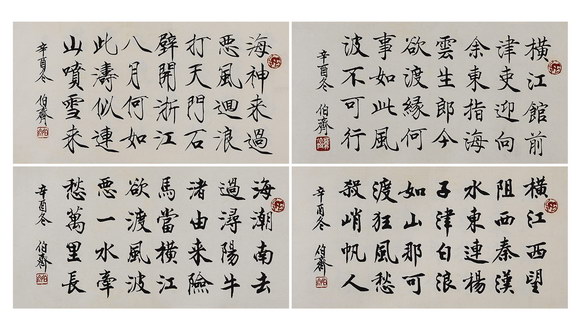 橫江館前
津吏迎向
余東指海
雲生郎今
欲渡緣何
事如此風
波不可行
辛酉冬 伯齋
海神来過
悪風迴浪
打天門石
壁開浙江
八月何如
此濤似連
山噴雪来
辛酉冬 伯齋
橫江西望
阻西秦漢
水東連楊
子津白浪
如山那可
渡狂風愁
殺峭帆人
辛酉冬 伯齋
海潮南去
過潯陽牛
渚由来險
馬當橫江
欲渡風波
悪一水牽
愁萬里長
辛酉冬 伯齋